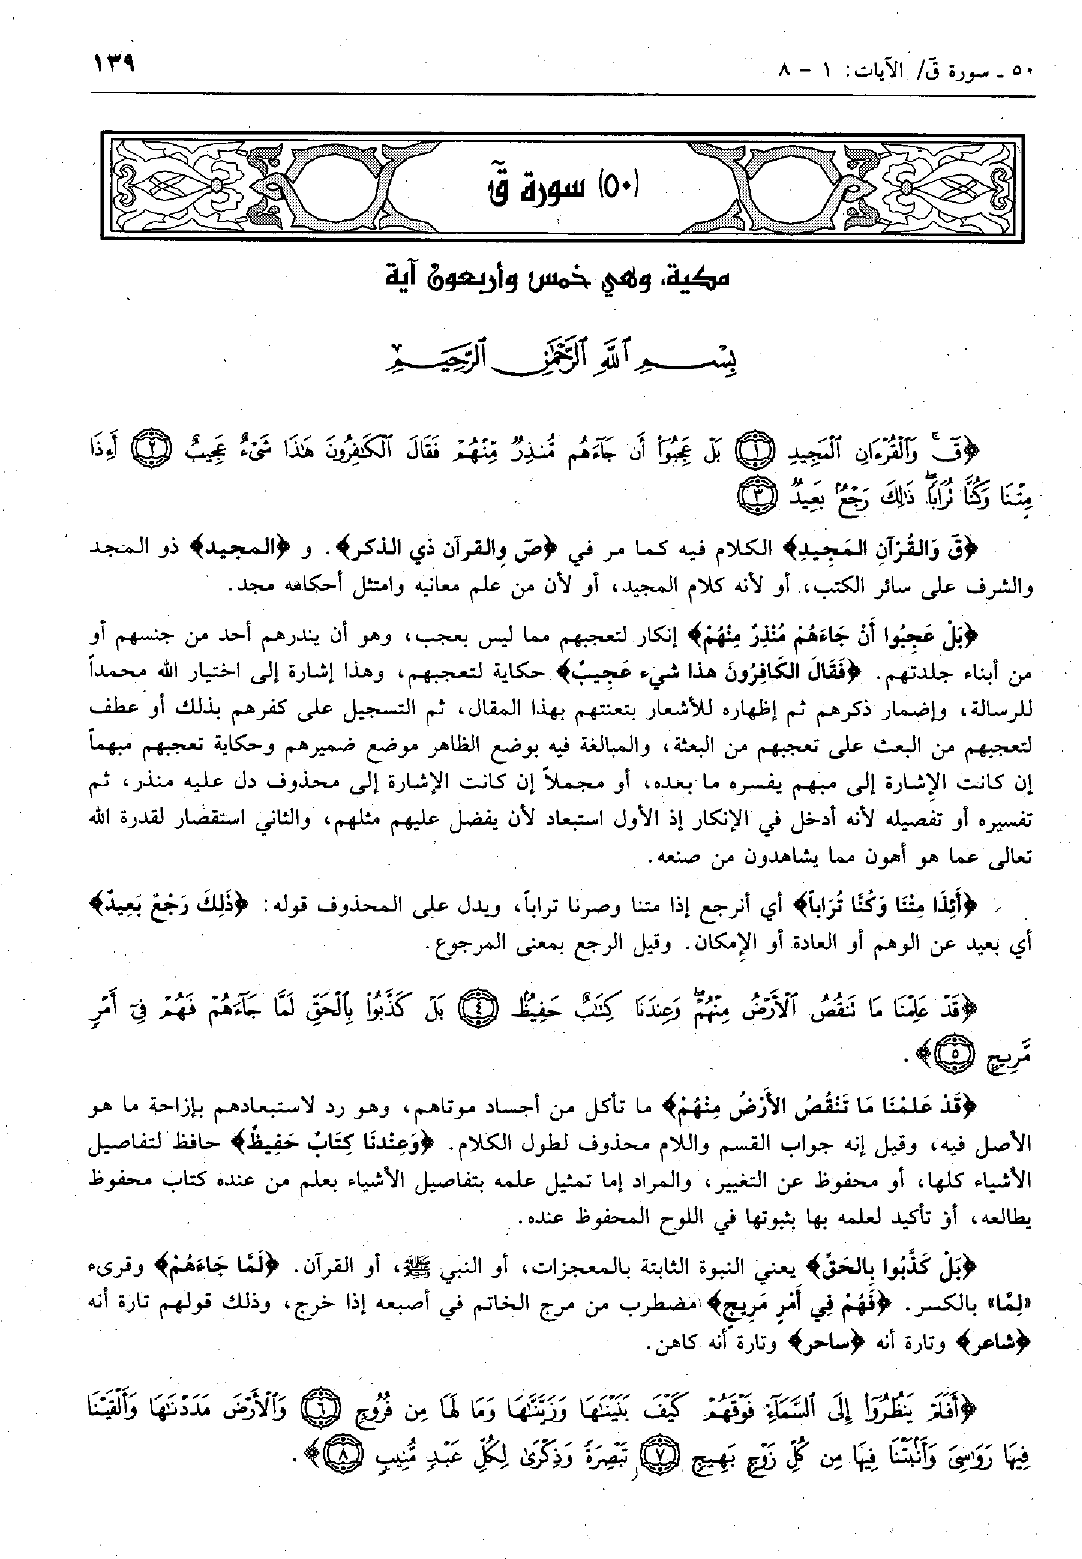 ٥٠ ـ سورة قَ/ الآيات: ١ - ٨
١٣٩
(٥٠) سورة قَ
مكية، وهي خمس وأربعون آية
بِسْمِ ٱللَّهِ ٱلرَّحْمَٰنِ ٱلرَّحِيمِ
﴿قٓۚ وَٱلْقُرْءَانِ ٱلْمَجِيدِ ﴿١﴾ بَلْ عَجِبُوٓا۟ أَن جَآءَهُم مُّنذِرٌ مِّنْهُمْ فَقَالَ ٱلْكَٰفِرُونَ هَٰذَا شَىْءٌ عَجِيبٌ ﴿٢﴾ أَءِذَا
مِتْنَا وَكُنَّا تُرَابًاۖ ذَٰلِكَ رَجْعٌۢ بَعِيدٌ ﴿٣﴾
﴿قَ وَالقُرْآنِ المَجِيدِ﴾ الكلام فيه كما مر في ﴿صَ والقرآن ذي الذكر﴾. و ﴿المجيد﴾ ذو المجد
والشرف على سائر الكتب، أو لأنه كلام المجيد، أو لأن من علم معانيه وامتثل أحكامه مجد.
﴿بَلْ عَجِبُوا أَنْ جَاءَهُمْ مُنْذِرٌ مِنْهُمْ﴾ إنكار لتعجبهم مما ليس بعجب، وهو أن ينذرهم أحد من جنسهم أو
من أبناء جلدتهم. ﴿فَقَالَ الكَافِرُونَ هذا شيء عَجِيبٌ﴾ حكاية لتعجبهم، وهذا إشارة إلى اختيار الله محمداً
للرسالة، وإضمار ذكرهم ثم إظهاره للأشعار بتعنتهم بهذا المقال، ثم التسجيل على كفرهم بذلك أو عطف
لتعجبهم من البعث على تعجبهم من البعثة، والمبالغة فيه بوضع الظاهر موضع ضميرهم وحكاية تعجبهم مبهماً
إن كانت الإشارة إلى مبهم يفسره ما بعده، أو مجملاً إن كانت الإشارة إلى محذوف دل عليه منذر، ثم
تفسيره أو تفصيله لأنه أدخل في الإنكار إذ الأول استبعاد لأن يفضل عليهم مثلهم، والثاني استقصار لقدرة الله
تعالى عما هو أهون مما يشاهدون من صنعه.
﴿أَئِذَا مِتْنَا وَكُنَّا تُرَاباً﴾ أي أنرجع إذا متنا وصرنا تراباً، ويدل على المحذوف قوله: ﴿ذَلِكَ رَجْعٌ بَعِيدٌ﴾
أي بعيد عن الوهم أو العادة أو الإمكان. وقيل الرجع بمعنى المرجوع.
﴿قَدْ عَلِمْنَا مَا تَنقُصُ ٱلْأَرْضُ مِنْهُمْۖ وَعِندَنَا كِتَٰبٌ حَفِيظٌۢ ﴿٤﴾ بَلْ كَذَّبُوا۟ بِٱلْحَقِّ لَمَّا جَآءَهُمْ فَهُمْ فِىٓ أَمْرٍ
مَّرِيجٍ ﴿٥﴾﴾.
﴿قَدْ عَلِمْنَا مَا تَنْقُصُ الأَرْضُ مِنْهُمْ﴾ ما تأكل من أجساد موتاهم، وهو رد لاستبعادهم بإزاحة ما هو
الأصل فيه، وقيل إنه جواب القسم واللام محذوف لطول الكلام. ﴿وَعِنْدَنَا كِتَابٌ حَفِيظٌ﴾ حافظ لتفاصيل
الأشياء كلها، أو محفوظ عن التغيير، والمراد إما تمثيل علمه بتفاصيل الأشياء بعلم من عنده كتاب محفوظ
يطالعه، أو تأكيد لعلمه بها بثبوتها في اللوح المحفوظ عنده.
﴿بَلْ كَذَّبُوا بِالحَقِّ﴾ يعني النبوة الثابتة بالمعجزات، أو النبي ﷺ، أو القرآن. ﴿لَمَّا جَاءَهُمْ﴾ وقرىء
«لِمَّا» بالكسر. ﴿فَهُمْ فِي أَمْرٍ مَرِيجٍ﴾ مضطرب من مرج الخاتم في أصبعه إذا خرج، وذلك قولهم تارة أنه
﴿شاعر﴾ وتارة أنه ﴿ساحر﴾ وتارة أنه كاهن.
﴿أَفَلَمْ يَنظُرُوٓا۟ إِلَى ٱلسَّمَآءِ فَوْقَهُمْ كَيْفَ بَنَيْنَٰهَا وَزَيَّنَّٰهَا وَمَا لَهَا مِن فُرُوجٍ ﴿٦﴾ وَٱلْأَرْضَ مَدَدْنَٰهَا وَأَلْقَيْنَا
فِيهَا رَوَٰسِىَ وَأَنۢبَتْنَا فِيهَا مِن كُلِّ زَوْجٍۭ بَهِيجٍ ﴿٧﴾ تَبْصِرَةً وَذِكْرَىٰ لِكُلِّ عَبْدٍ مُّنِيبٍ ﴿٨﴾﴾.